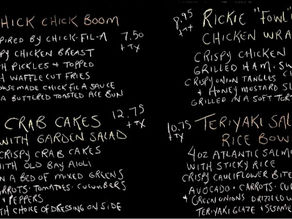 CHICK CHICK BOOM
INSPIRED BY CHICK-FIL-A 7.50
CRISPY CHICKEN BREAST + TX
WITH PICKLES + TOPPED
WITH WAFFLE CUT FRIES
HOUSEMADE CHICK FIL A SAUCE
ON A BUTTERED TOASTED ACE BUN
CRAB CAKES 12.75
WITH GARDEN SALAD + TX
CRISPY CRAB CAKES
WITH OLD BAY AIOLI
ON A BED OF MIXED GREENS
CARROTS. TOMATOES. CUCUMBERS
+ PEPPERS
WITH CHOICE OF DRESSING ON SIDE
8.95 RICKIE "FOWL
+ TX CHICKEN WRA
CRISPY CHICKEN
GRILLED HAM. SW
CRISPY ONION TANGLES
+ HONEY MUSTARD
GRILLED IN A SOFT TORT
10.75 TERIYAKI SAL
+ TX RICE BOW
4OZ ATLANTIC SALMO
WITH STICKY RICE
CRISPY CAULIFLOWER BITE
AVOCADO. CARROTS. CU
+ GREEN ONIONS DRIZZLED W
TERIYAKI GLAZE + SESAME